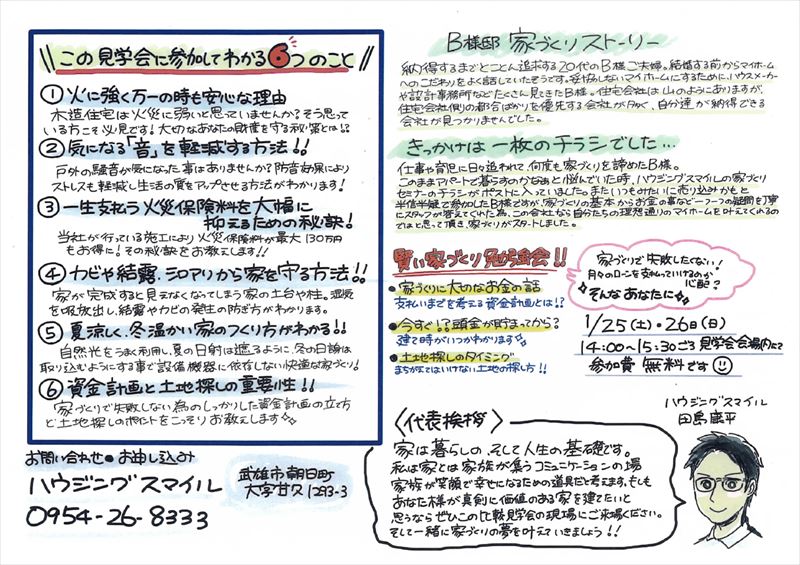 この見学会に参加してわかる6つのこと
① 火に強く万一の時も安心な理由
木造住宅は火災に弱いと思っていませんか?そう思って
いる方こそ必見です!大切なあなたの財産を守る秘密とは!?
② 気になる「音」を軽減する方法!!
戸外の騒音が気になった事はありませんか?防音効果により
ストレスも軽減し生活の質をアップさせる方法がわかります!
③ 一生支払う火災保険料を大幅に
抑えるための秘訣!
当社が行っている施工により火災保険料が最大130万円
もお得に!その秘訣をお教えします!!
④ カビや結露、シロアリから家を守る方法!!
家が完成すると見えなくなってしまう家の土台や柱。湿気
を吸放出し、結露やカビの発生の防ぎ方がわかります。
⑤ 夏涼しく、冬温かい家のつくり方がわかる!!
自然光をうまく利用し、夏の日射は遮るように、冬の日射は
取り込むようにする事で設備機器に依存しない快適な家づくり!
⑥ 資金計画と土地探しの重要性!!
家づくりで失敗しない為のしっかりした資金計画の立て方
と土地探しのポイントをこっそりお教えします
お問い合わせ・お申し込み
ハウジングスマイル
0954-26-8333
武雄市朝日町
大字甘久1293-3
B様邸 家づくりストーリー
納得するまでとことん追求する20代のB様ご夫婦。結婚する前からマイホーム
へのこだわりをよく話していたそうです。妥協しないマイホームにするために、ハウスメーカー
や設計事務所などたくさん見てきたB様。住宅会社は山のようにありますが、
住宅会社側の都合ばかりを優先する会社が多く、自分達が納得できる
会社が見つかりませんでした。
きっかけは一枚のチラシでした…
仕事や育児に日々追われて、何度も家づくりを諦めたB様。
このままアパートで暮らすのかなぁと悩んでいた時、ハウジングスマイルの家づくり
セミナーのチラシがポストに入っていました。またいつもみたいに売り込みかもと
半信半疑で参加したB様ですが、家づくりの基本からお金の事など一つ一つの疑問を丁寧
にスタッフが答えてくれた為、この会社なら自分たちの理想通りのマイホームを叶えてくれるので
はと思って頂き、家づくりがスタートしました。
賢い家づくり勉強会!!
・家づくりに大切なお金の話
支払いまでを考える資金計画とは!?
・今すぐ!?頭金が貯まってから?
建て時がいつかわかります
・土地探しのタイミング
まちがえてはいけない土地の探し方!!
家づくりで失敗したくない!
月々のローンを支払っていけるのか
心配?
そんなあなたに
1/25(土)・26(日)
14:00~15:30ごろ 見学会会場内にて
参加費 無料です
ハウジングスマイル
田島 康平
〈代表挨拶〉
家は暮らしの、そして人生の基礎です。
私は家とは家族が集うコミュニケーションの場
家族が笑顔で幸せになるための道具だと考えます。もしも
あなた様が真剣に価値のある家を建てたいと
思うならぜひこの比較見学会の現場にご来場ください。
そして一緒に家づくりの夢を叶えていきましょう!!